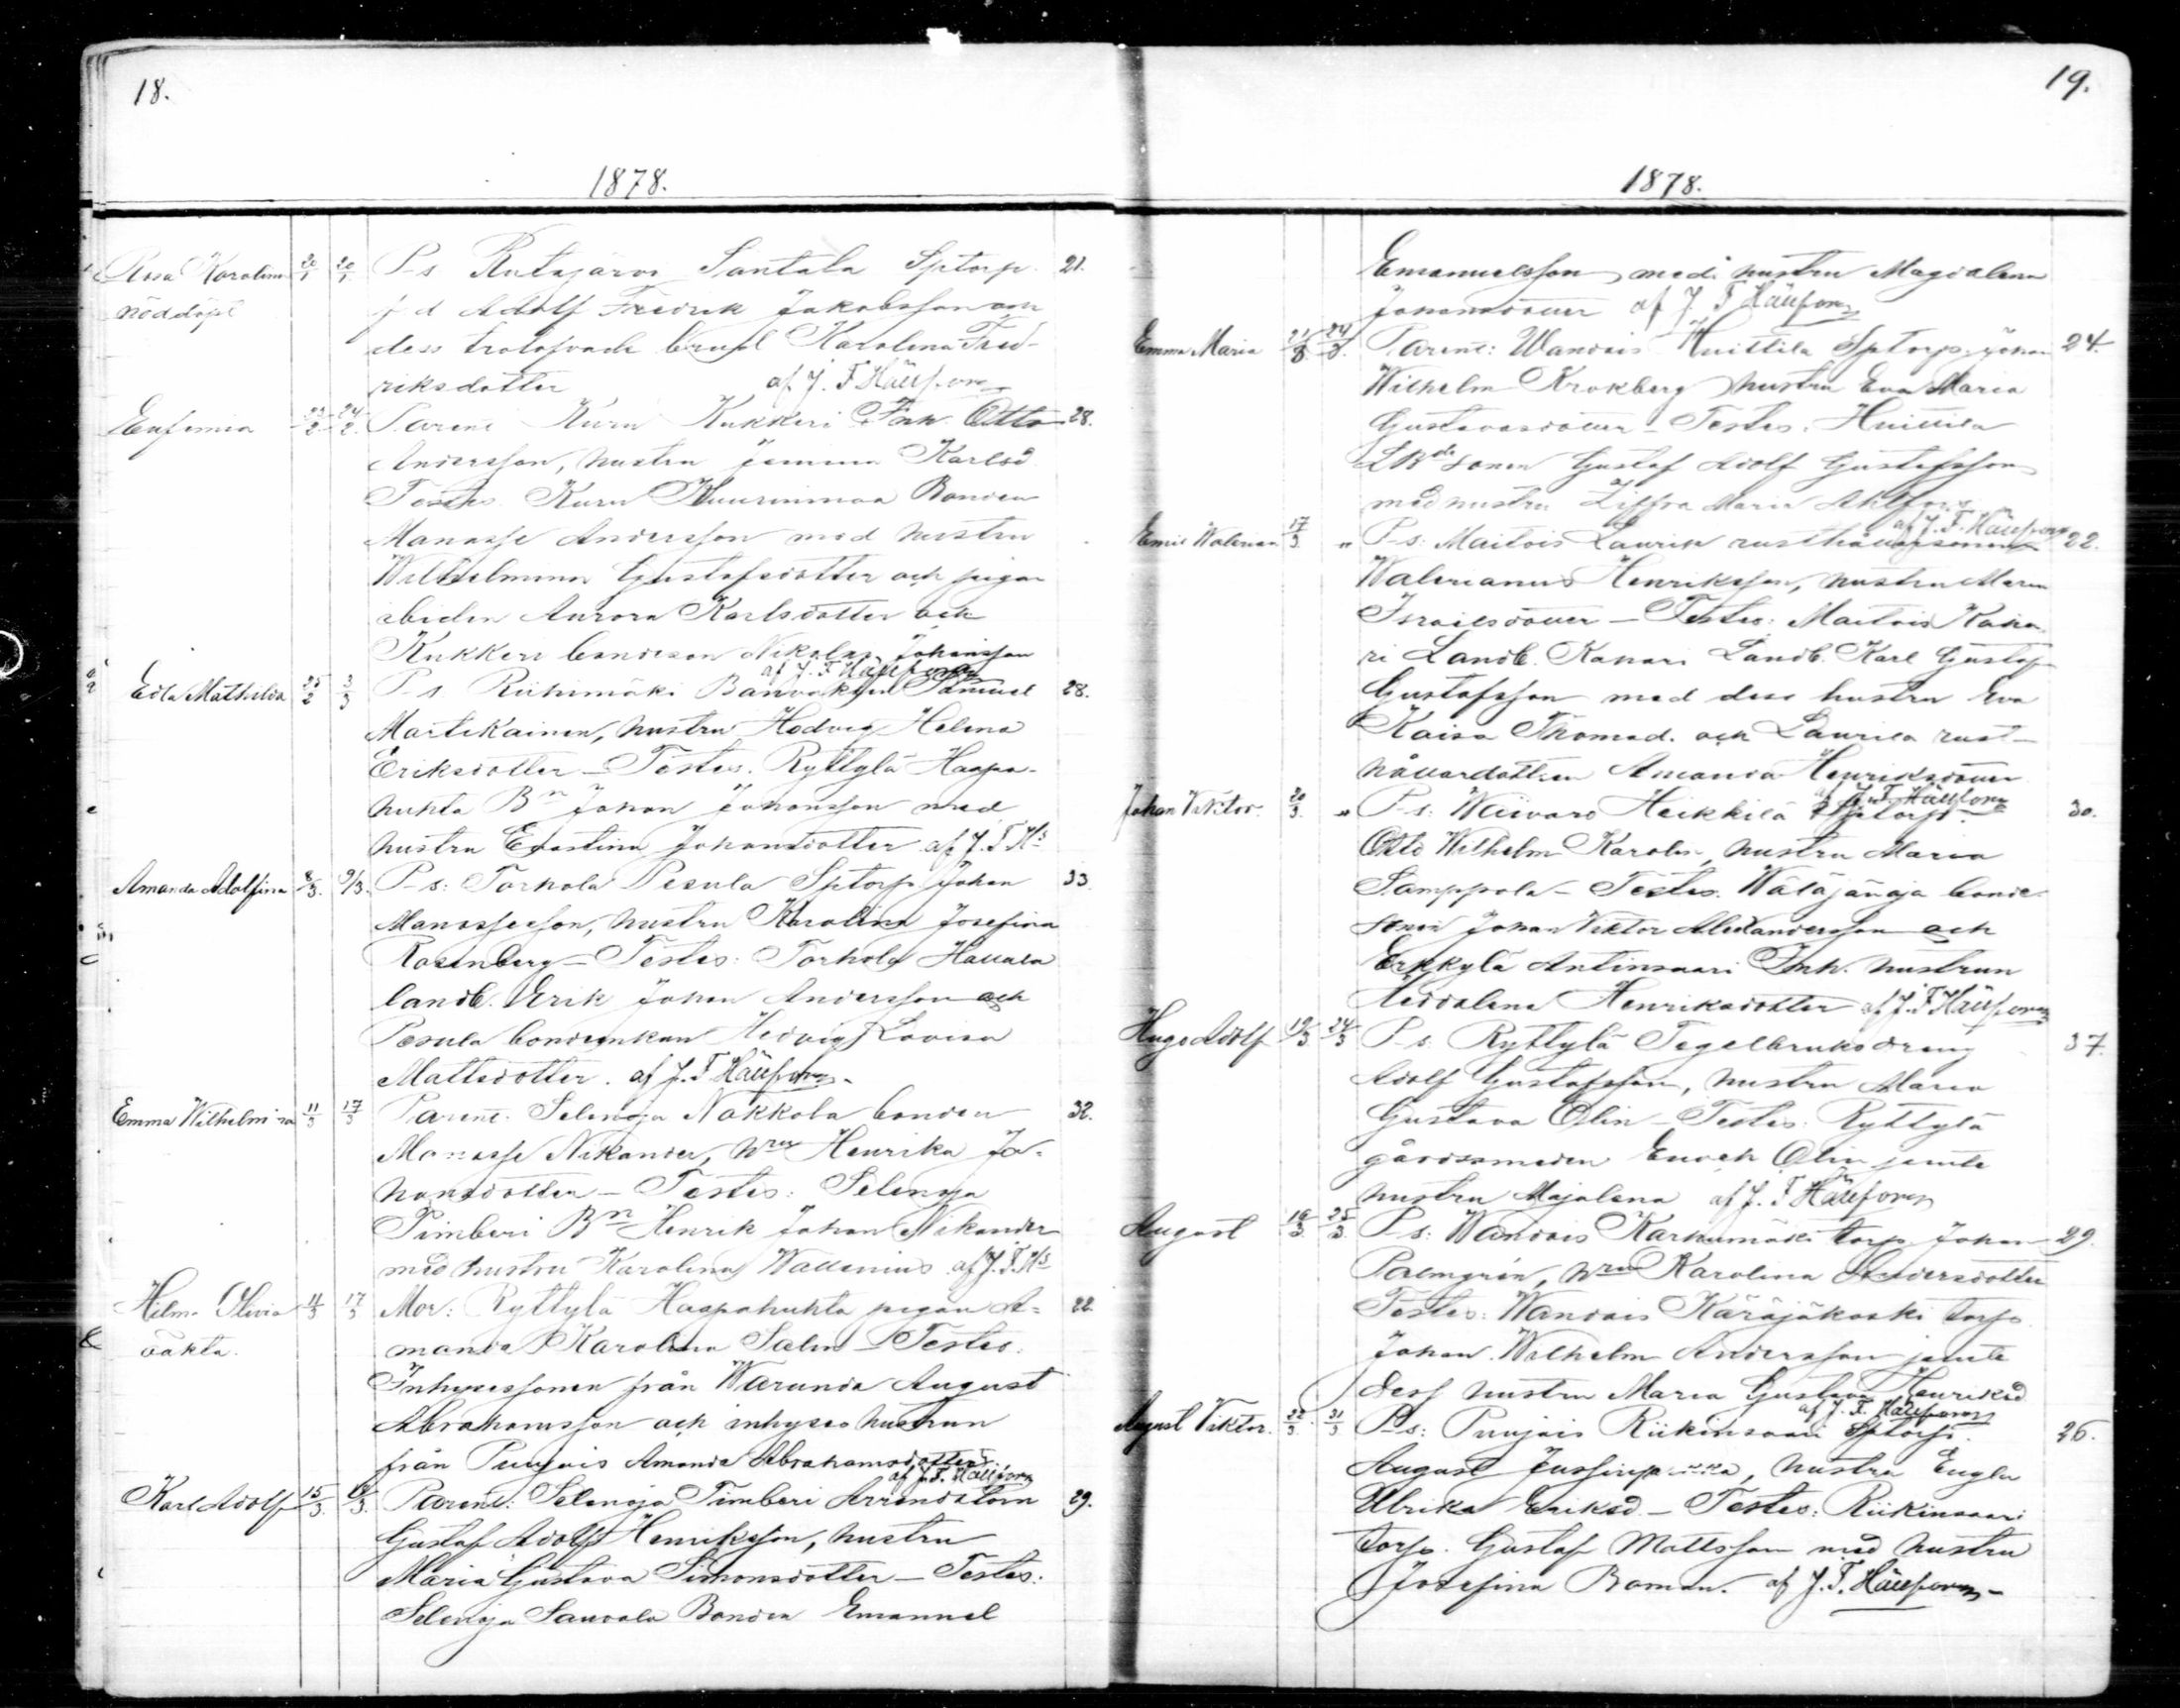 18.
1878.
Rosa Karolina 20/1 20/1 P-s Rutajärvi Santala Sptorp. 21.
nöddöpt j d Adolf Fredrik Jakobsson och
dess trolofvade brud Karolina Fred-
riksdotter af J. F. Hällfors
Eufemia 23/2 24/2 Parent Kuru Kukkeri Inh. Otto 28.
Andersson, hustru Karlsd
Testes Kuru Bonden
Manasse Andersson med hustru
Wilhelmina Gustafsdotter och pigan
Aurora Karlsdotter och
Kukkeri bondeson Nikolai Johansson
af J. F. Hällfors
Eila Mathilda 25/2 3/3 P-s Riihimäki Banvakten Samuel 28.
Martikainen, hustru Hedvig Helena
Eriksdotter – Testes. Ryttylä Haapa-
huhta Bn Johan Johansson med
hustru Ernstina Johansdotter af J. F. Hs
Amanda Adolfina 8/3 9/3. P-s: Torhola Pesula Sptorp. Johan 33.
Manasseson, hustru Karolina Josefina
Rosenberg – Testes: Torhola
landb. Erik Johan Andersson och
Pesula bondenkan Hedvig Lovisa
Mattsdotter. af J. F. Hällfors
Emma Wilhelmina 11/3 17/3 Parent. Selenoja Nokkola bonden 32.
Manasse Nikander, hru Henrika Jo-
hansdotter – Testes: Selenoja
Pimberi Bn Henrik Johan Nikander
med hustru Karolina Wallenius af J. F. Hs
Hilma Olivia 11/3 17/3 Mor: Ryttylä Haapahuhta pigan A- 22.
oäkta. manda Karolina Salin – Testes.
Inhysessonen från Warunda August
Abrahamsson och inhyses hustrun
från Puujois Amanda Abrahamsdotter
af J. F. Hällfors
Karl Adolf 15/3. /3. Parent: Selenoja Timberi
Gustaf Adolf Henriksson, hustru 29.
Maria Gustava Simonsdotter – Testes:
Selenoja Sauvala Bonden Emanuel
19.
1878.
Emanuelsson med hustru Magdalena
Johansdotter af J. F. Hällfors
Emma Maria 21/3 24/3. Parent: Wandois Huittila Sptorp. Johan 24.
Wilhelm Krokberg hustru Eva Maria
Gustavasdotter – Testes. Huittila
sonen Gustaf Adolf Gustafsson
med hustru Ziffra Maria Ahlfors
af J. F. Hällfors
Emil Walerian 17/3 " P-s: Maitois Laurila rusthållarsonen 22.
Walerianus Henriksson, hustru Maria
Israelsdotter – Testes: Maitois Kana-
ri Landb. Kanari Landb. Karl Gustaf
Gustafsson med dess hustru Eva
Kaisa Thomasd. och Laurila rust-
hållardottren Amanda Henriksdotter
af J. F. Hällfors
Johan Viktor 20/3. " P-s: Heikkilä Sptorp. 30.
Otto Wilhelm Karolin, hustru Maria
Samppola – Testes. Wäläjänoja bonde-
sonen Johan Viktor Alexandersson och
Erkkylä Antinsaari Inh. hustrun
Heddalena Henriksdotter af J. F. Hällfors
Hugo Adolf 19/3 24/3 P-s: Ryttylä Tegelbruksdreng 37.
Adolf Gustafsson, hustru Maria
Gustava Olin – Testes. Ryttylä
gårdssmeden Enoch Olin jemte
hustru Majalena af J. F. Hällfors
August 19/3 25/3. P-s: Wandois Karhumäki torp. Johan 29.
Palmgrén, hru Karolina Andersdotter
Testes: Wandois Käräjäkoski torp.
Johan Wilhelm Andersson jemte
dess hustru Maria Gustava Henriksd
af J. F. Hällfors
August Viktor. 22/3. 31/3 P-s: Puujois Riikinsaari Sptorp. 26.
August , hustru Engla
Ulrika Eriksd. – Testes: Riikinsaari
torp. Gustaf Mattsson med hustru
Josefina Boman. af J. F. Hällfors –